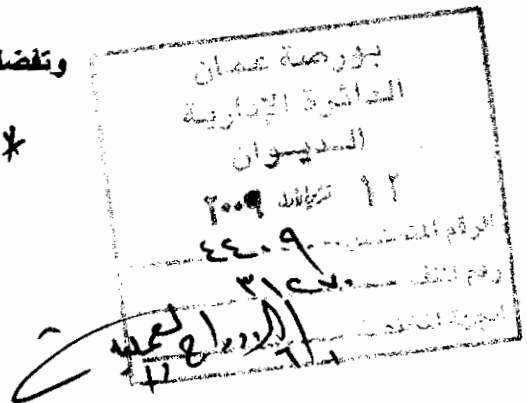 وتفضلـ
*
بورصة عمان
الدائرة الإدارية
الديوان
١٢ ٢٠٠٩
الرقم المتسلسل ٤٤٠٩
رقم الملف ٣١٢٧٠
الجهة المختصة